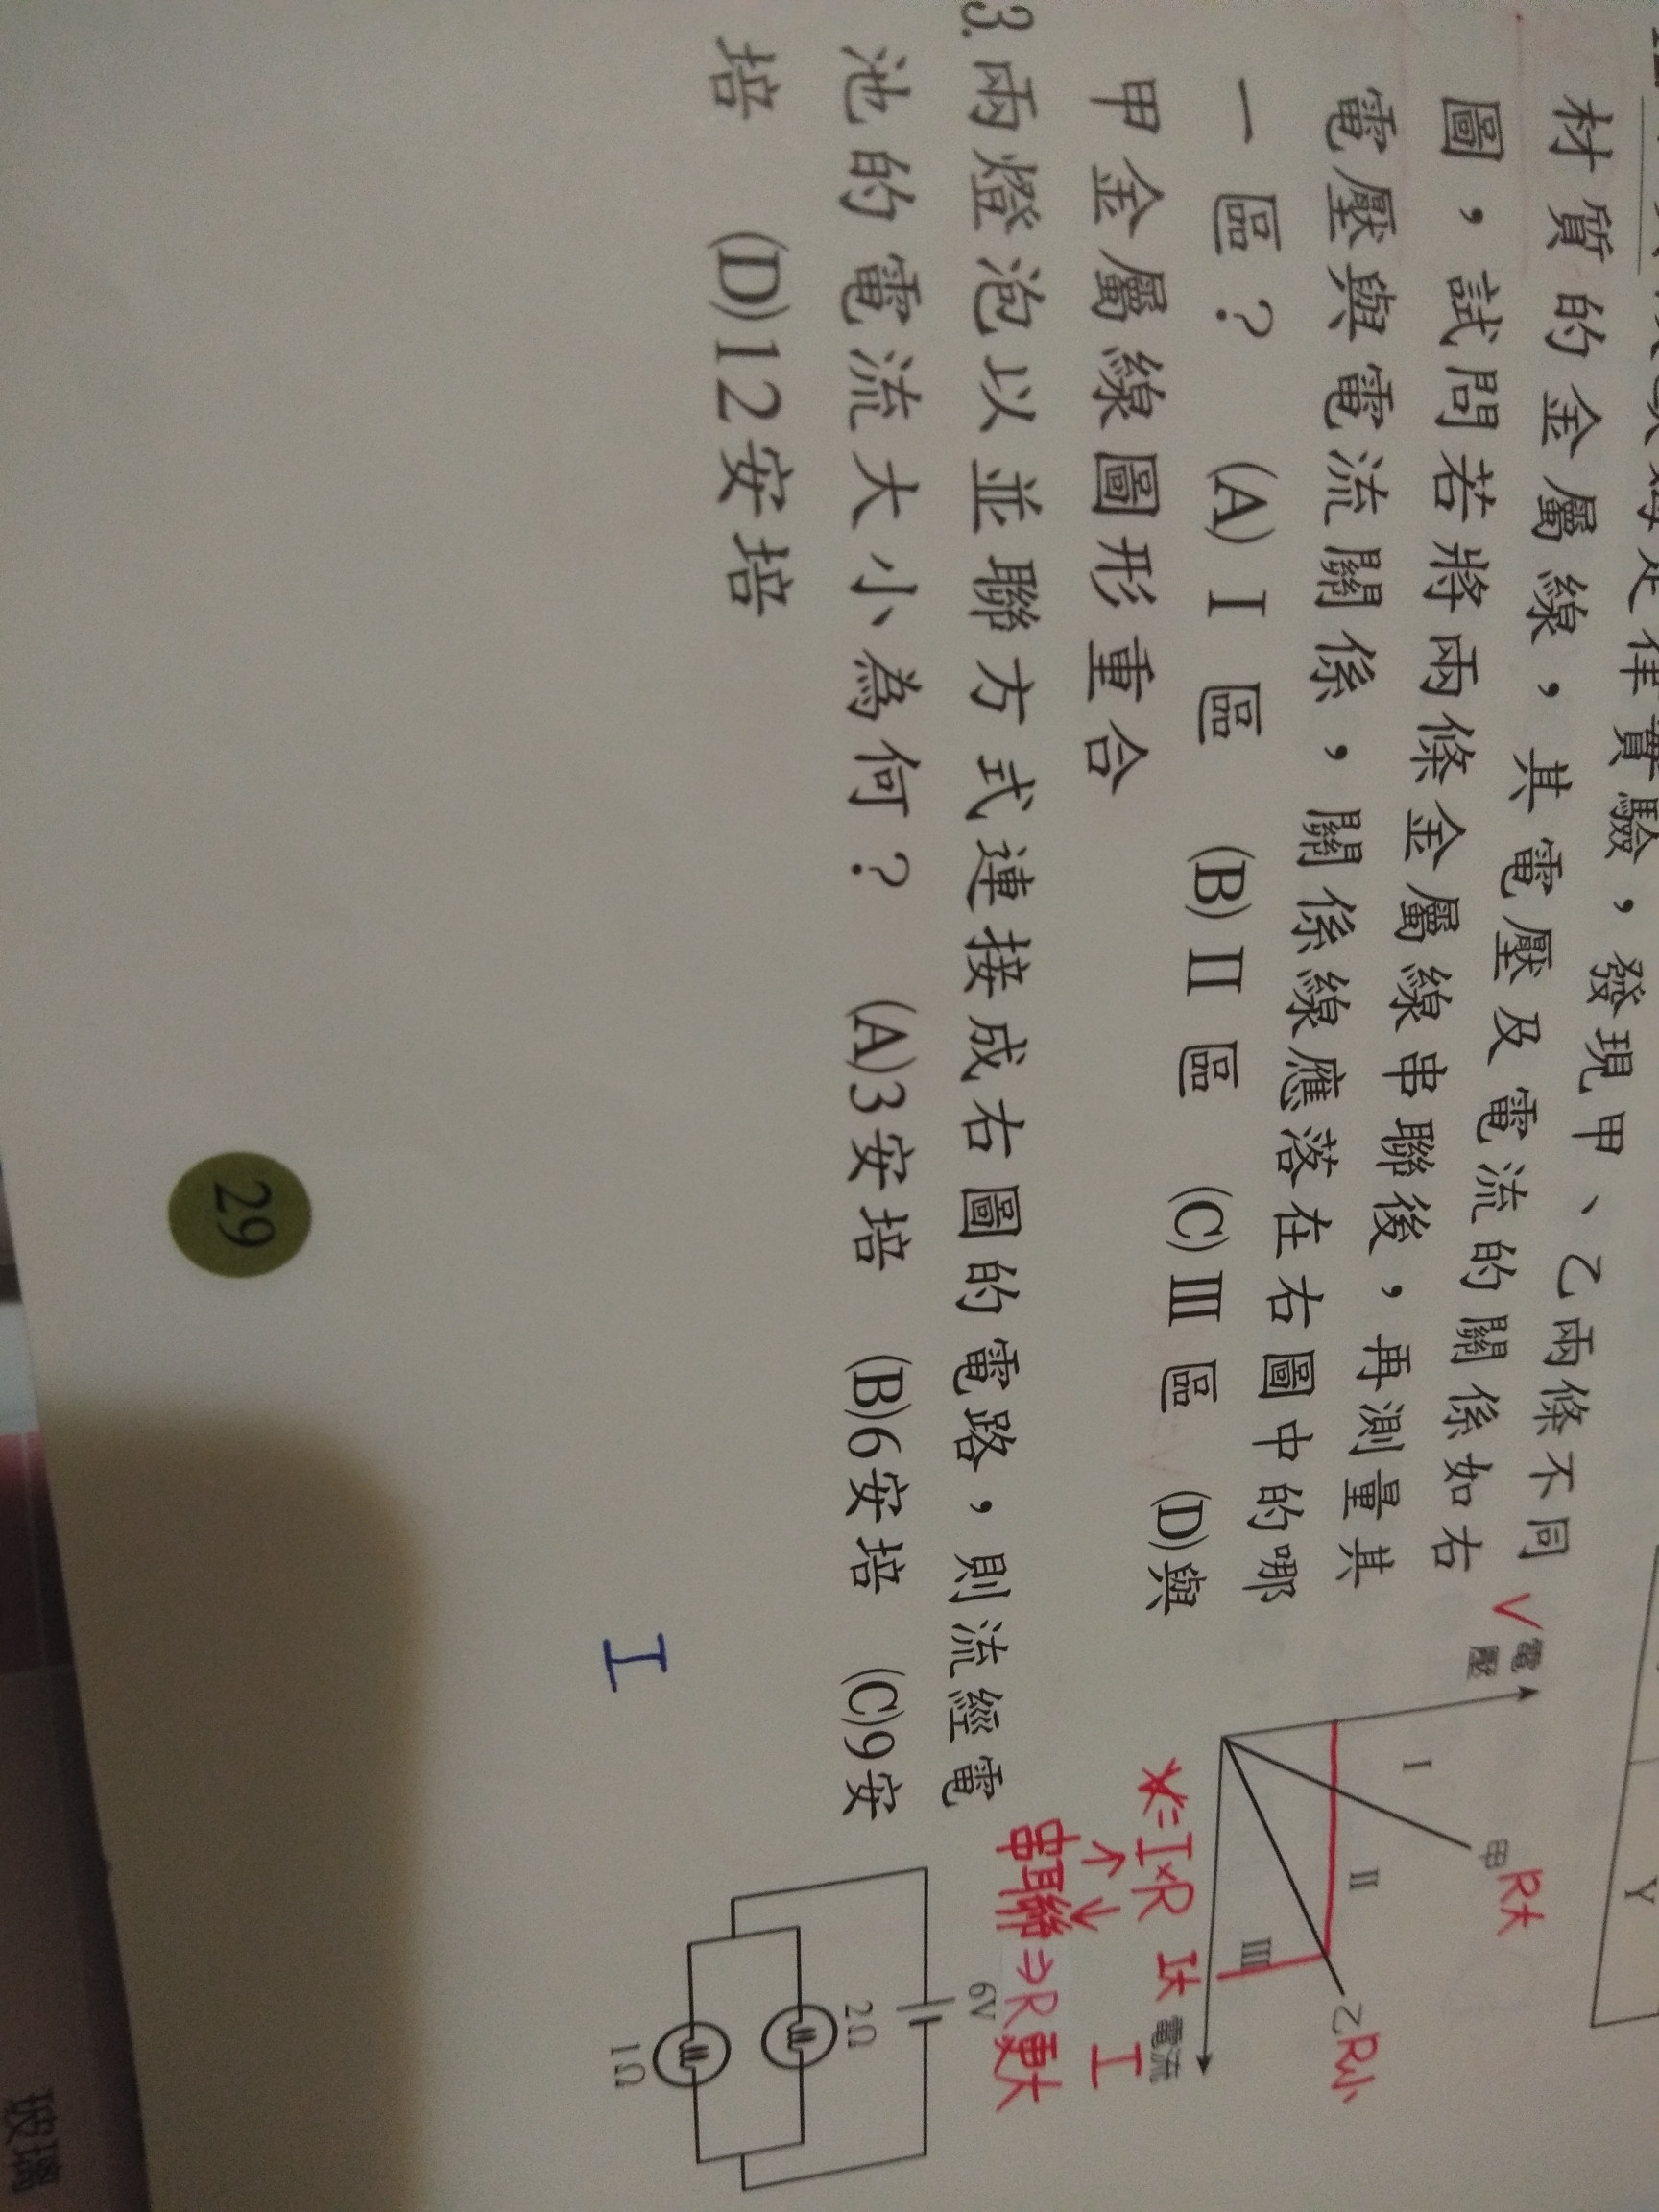 律實驗，發現甲、乙兩條不同
材質的金屬線，其電壓及電流的關係如右
圖，試問若將兩條金屬線串聯後，再測量其
電壓與電流關係，關係線應落在右圖中的哪
一區？ (A)Ⅰ區 (B)Ⅱ區 (C)Ⅲ區 (D)與
甲金屬線圖形重合
V
電壓
Ⅰ
甲 R大
Ⅱ
乙 R小
Ⅲ
電流
I大
I
V=I×R
↑ ↓
串聯⇒R更大
Y
3.兩燈泡以並聯方式連接成右圖的電路，則流經電
池的電流大小為何？ (A)3安培 (B)6安培 (C)9安
培 (D)12安培
6V
2Ω
1Ω
I
29
玻璃